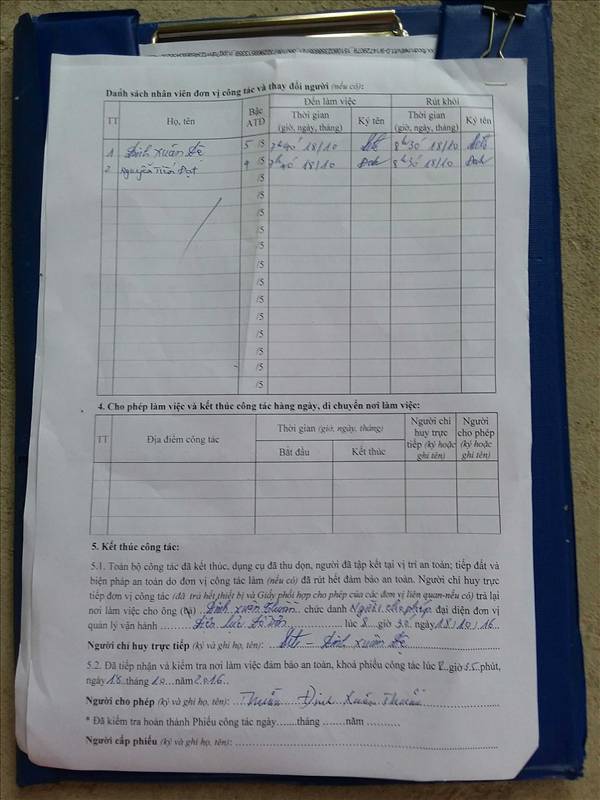 Danh sách nhân viên đơn vị công tác và thay đổi người (nếu có):
TT Họ, tên Bậc ATĐ Đến làm việc Rút khỏi
Thời gian (giờ, ngày, tháng) Ký tên Thời gian (giờ, ngày, tháng) Ký tên
1 Đinh Xuân Đệ 5 /5 7h40' 18/10 8h30' 18/10
2 Nguyễn Đạt 4 /5 7h40' 18/10 Đạt 8h30' 18/10 Đạt
/5
/5
/5
/5
/5
/5
/5
/5
/5
/5
/5
/5
4. Cho phép làm việc và kết thúc công tác hàng ngày, di chuyển nơi làm việc:
TT Địa điểm công tác Thời gian (giờ, ngày, tháng) Người chỉ huy trực tiếp (ký hoặc ghi tên) Người cho phép (ký hoặc ghi tên)
Bắt đầu Kết thúc
5. Kết thúc công tác:
5.1. Toàn bộ công tác đã kết thúc, dụng cụ đã thu dọn, người đã tập kết tại vị trí an toàn; tiếp đất và
biện pháp an toàn do đơn vị công tác làm (nếu có) đã rút hết đảm bảo an toàn. Người chỉ huy trực
tiếp đơn vị công tác (đã trả hết thiết bị và Giấy phối hợp cho phép của các đơn vị liên quan-nếu có) trả lại
nơi làm việc cho ông (bà) Đinh Xuân Thuần chức danh Người cho phép đại diện đơn vị
quản lý vận hành Điện lực lúc 8 giờ 30 ngày 18/10/16
Người chỉ huy trực tiếp (ký và ghi họ, tên): Đinh Xuân Đệ
5.2. Đã tiếp nhận và kiểm tra nơi làm việc đảm bảo an toàn, khoá phiếu công tác lúc 8 giờ 35 phút,
ngày 18 tháng 10 năm 2016
Người cho phép (ký và ghi họ, tên): Thuần Đinh Xuân Thuần
* Đã kiểm tra hoàn thành Phiếu công tác ngày......tháng ......năm ..........
Người cấp phiếu (ký và ghi họ, tên):